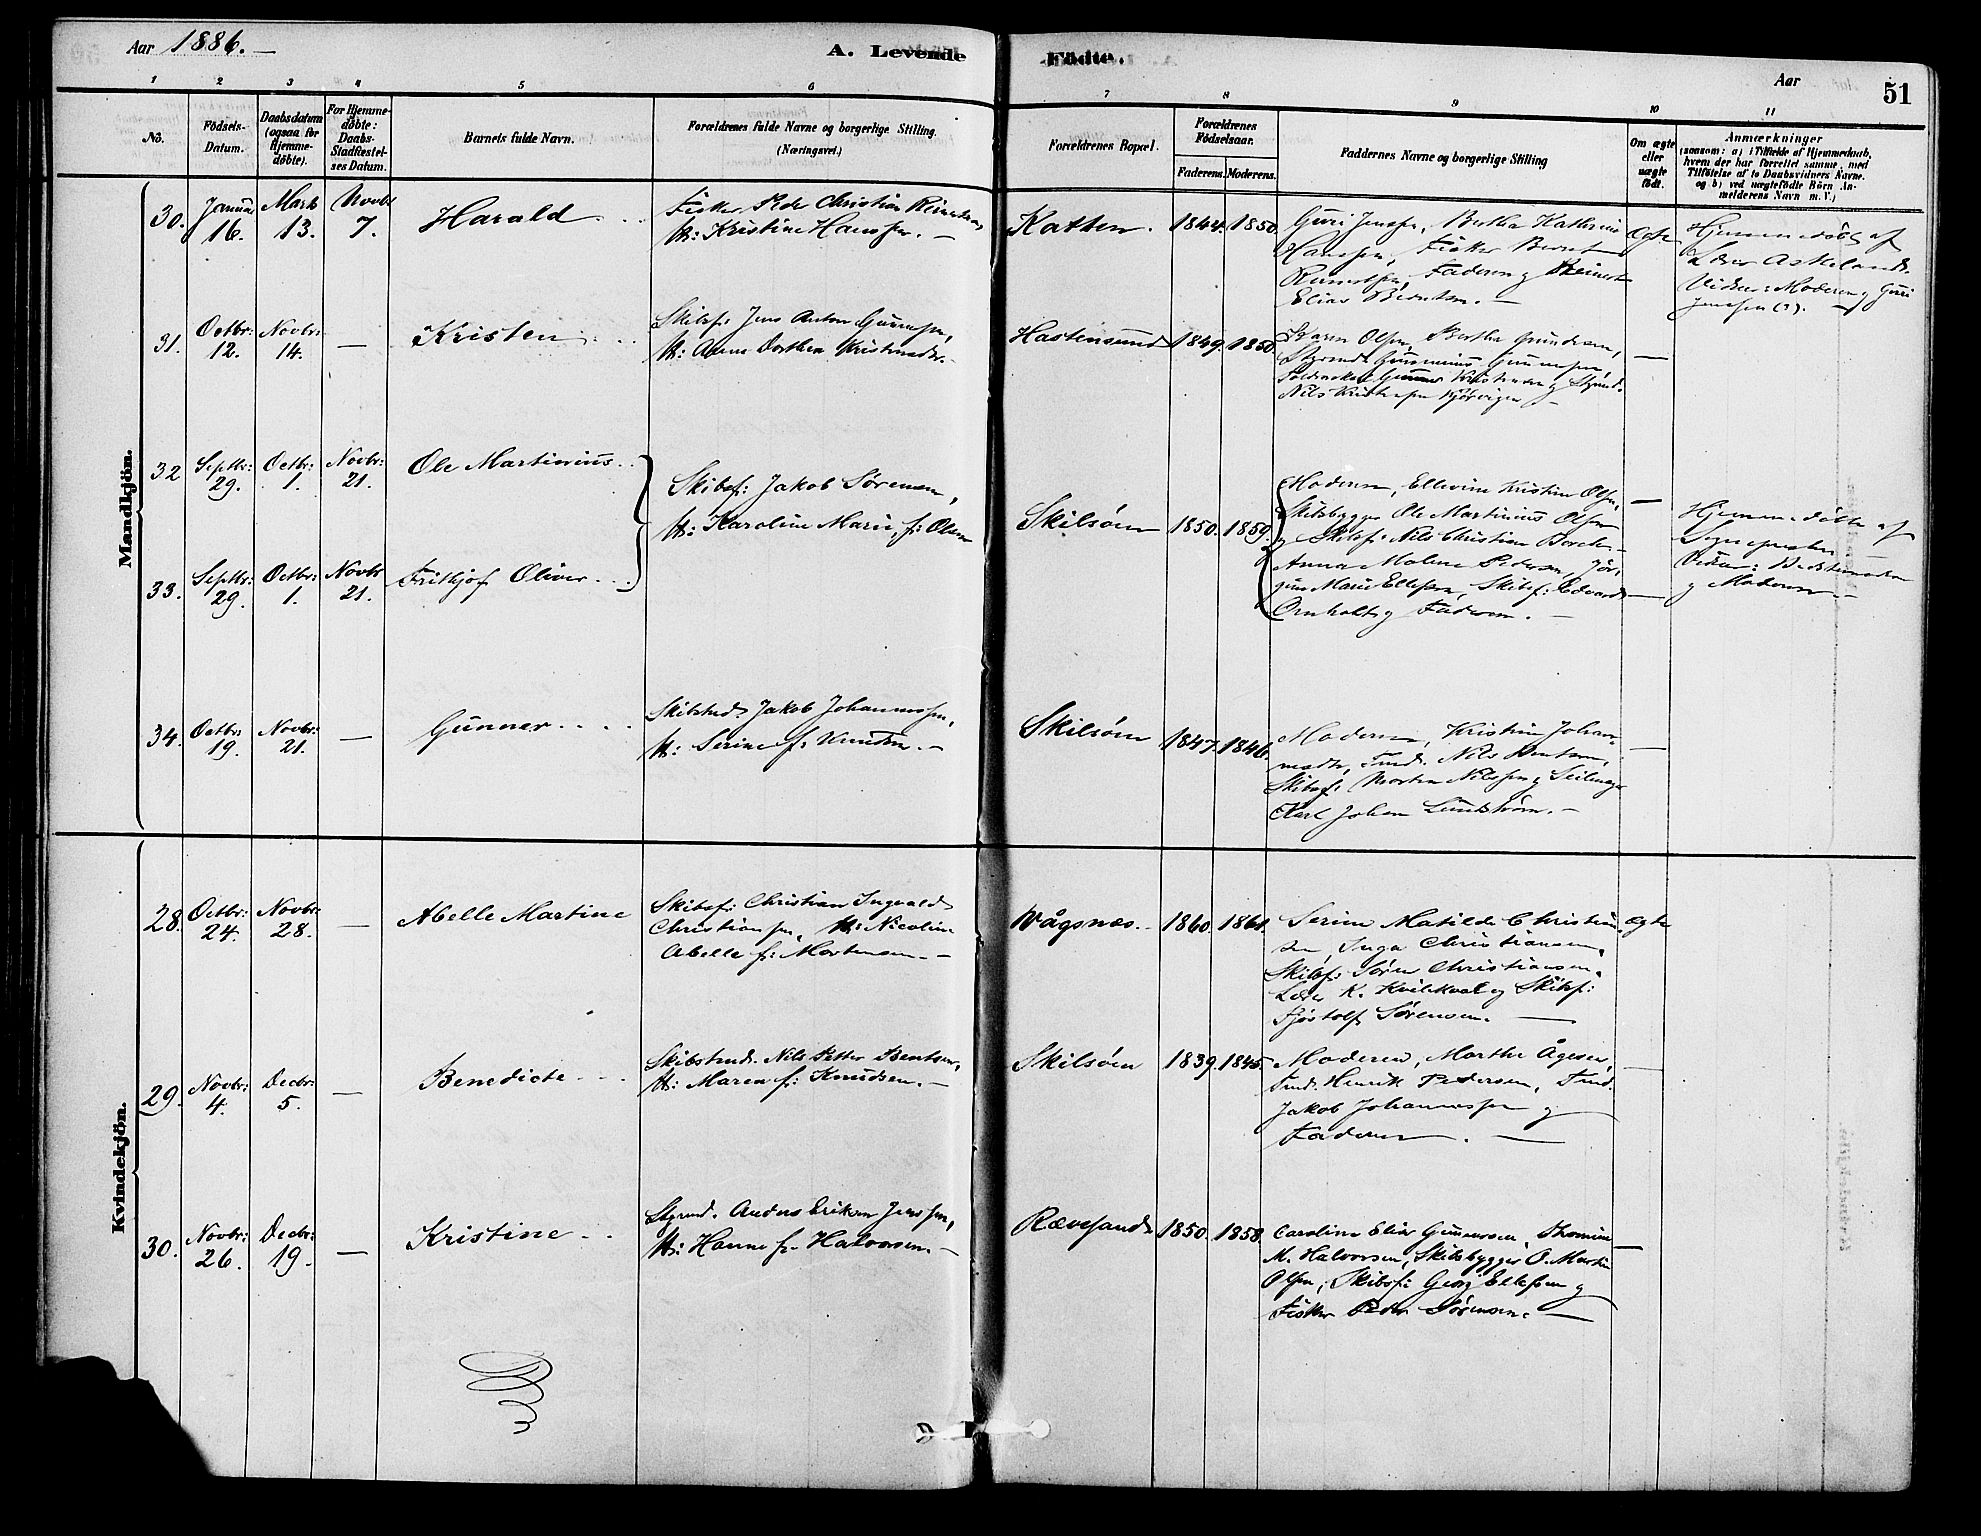 Aar 1886. —
A. Levende
Födte.
Aar
51
1 2 3 4 5 6 7 8 9 10 11
No.
Födsels-
Datum.
Daabsdatum
(ogsaa for
Hjemme-
døbte).
For Hjemme-
døbte:
Daabs-
Stadfæstel-
ses Datum.
Barnets fulde Navn.
Forældrenes fulde Navne og borgerlige Stilling.
(Næringsvei.)
Forældrenes Bopæl.
Forældrenes
Födselsaar.
Faderens. Moderens.
Faddernes Navne og borgerlige Stilling
Om ægte
eller
uægte
født.
Anmærkninger
(saasom: a) i Tilfælde af Hjemmedaab,
hvem der har forrettet samme, med
Tilföielse af to Daabsvidners Navne.
og b) ved uægtefødte Börn An-
melderens Navn m. V.)
Mandkjön.
30.
Januar
16.
Marts
13.
Novbr
7.
Harald
Fisker Peder Christian
H: Kristine Hanssen. —
Katten.
1844. 1850.
Guri Jenssen, Bertha Kathrine
Hanssen, Fisker Bernt
Faderen og
Elias Berntsen. —
Ægte
Hjemmedøbt af
Lærer Askeland.
Vidner: Moderen og Guri
Jenssen (?). —
31.
Octbr:
12.
Novbr:
14.
—
Kristen
Skibsf: Jens Anton Gunnersen,
H: Anne Dorthea Kristensdtr. —
Hastensund
1849. 1850.
Karen Olsen, Bertha Gundersen,
Styrmd: Gunnersen,
Gunner Kristensen og Styrmd.
Nils Kristensen Kjørvigen —
—
32
Septbr:
29.
Octbr:
1.
Novbr:
21.
Ole Martinius
Skibsf: Jakob Sørensen,
H: Karoline Marie, f: Olsen
Skilsøen
1850. 1859.
Moderen, Ellevine Kristine Olsen,
Skibsbygger Ole Martinius Olsen
og Skibsf: Nils Christian Borch. —
Anna Malene Pedersen, Jør-
gine Marie Ellefsen, Skibsf: Edvard
Ornholt og Faderen. —
—
Hjemmedøbte af
Sognepresten —
Vidner: Bedstemoderen
og Moderen. —
33.
Septbr:
29.
Octbr:
1.
Novbr
21.
Frithjof Oliver
—
34.
Octbr:
19.
Novbr:
21.
—
Gunner
Skibstmd. Jakob Johannessen,
H: Serine f: Knudsen. —
Skilsøen
1847. 1846.
Moderen, Kristine Johan-
nesdtr, Tmd. Nils Bentsen,
Skibsf: Morten Nilssen og Seilmager
Karl Johan Lundstrøm. —
—
Kvindekjön.
28.
Octbr:
24.
Novbr:
28.
—
Abelle Martine
Skibsf: Christian Ingvald
Christianssen, H: Nicoline
Abelle f: Mortensen. —
Vågsnæs.
1860. 1861.
Serine Matilde Christian-
sen, Inga Christiansen,
Skibsf: Søren Christiansen,
Lærer K. Kvilekval og Skibsf:
Fjøstolf Sørensen. —
Ægte
29.
Novbr:
4.
Decbr:
5.
—
Benedicte
Skibstmd. Nils Petter Bentsen,
H: Maren f: Knudsen. —
Skilsøen
1839. 1845.
Moderen, Marthe Ågesen,
Tmd. Henrik Pedersen, Tmd.
Jakob Johannessen og
Faderen. —
—
30.
Novbr:
26.
Decbr:
19.
—
Kristine
Styrmd. Anders Eriksen Jenssen,
H: Hanne f: Halvorsen. —
Rævesand
1850. 1858.
Caroline Elise Gunnersen, Thomine
M. Halvorsen, Skibsbygger O. Martin
Olsen, Skibsf: Georg Ellefsen og
Fisker Peder Sørensen. —
—